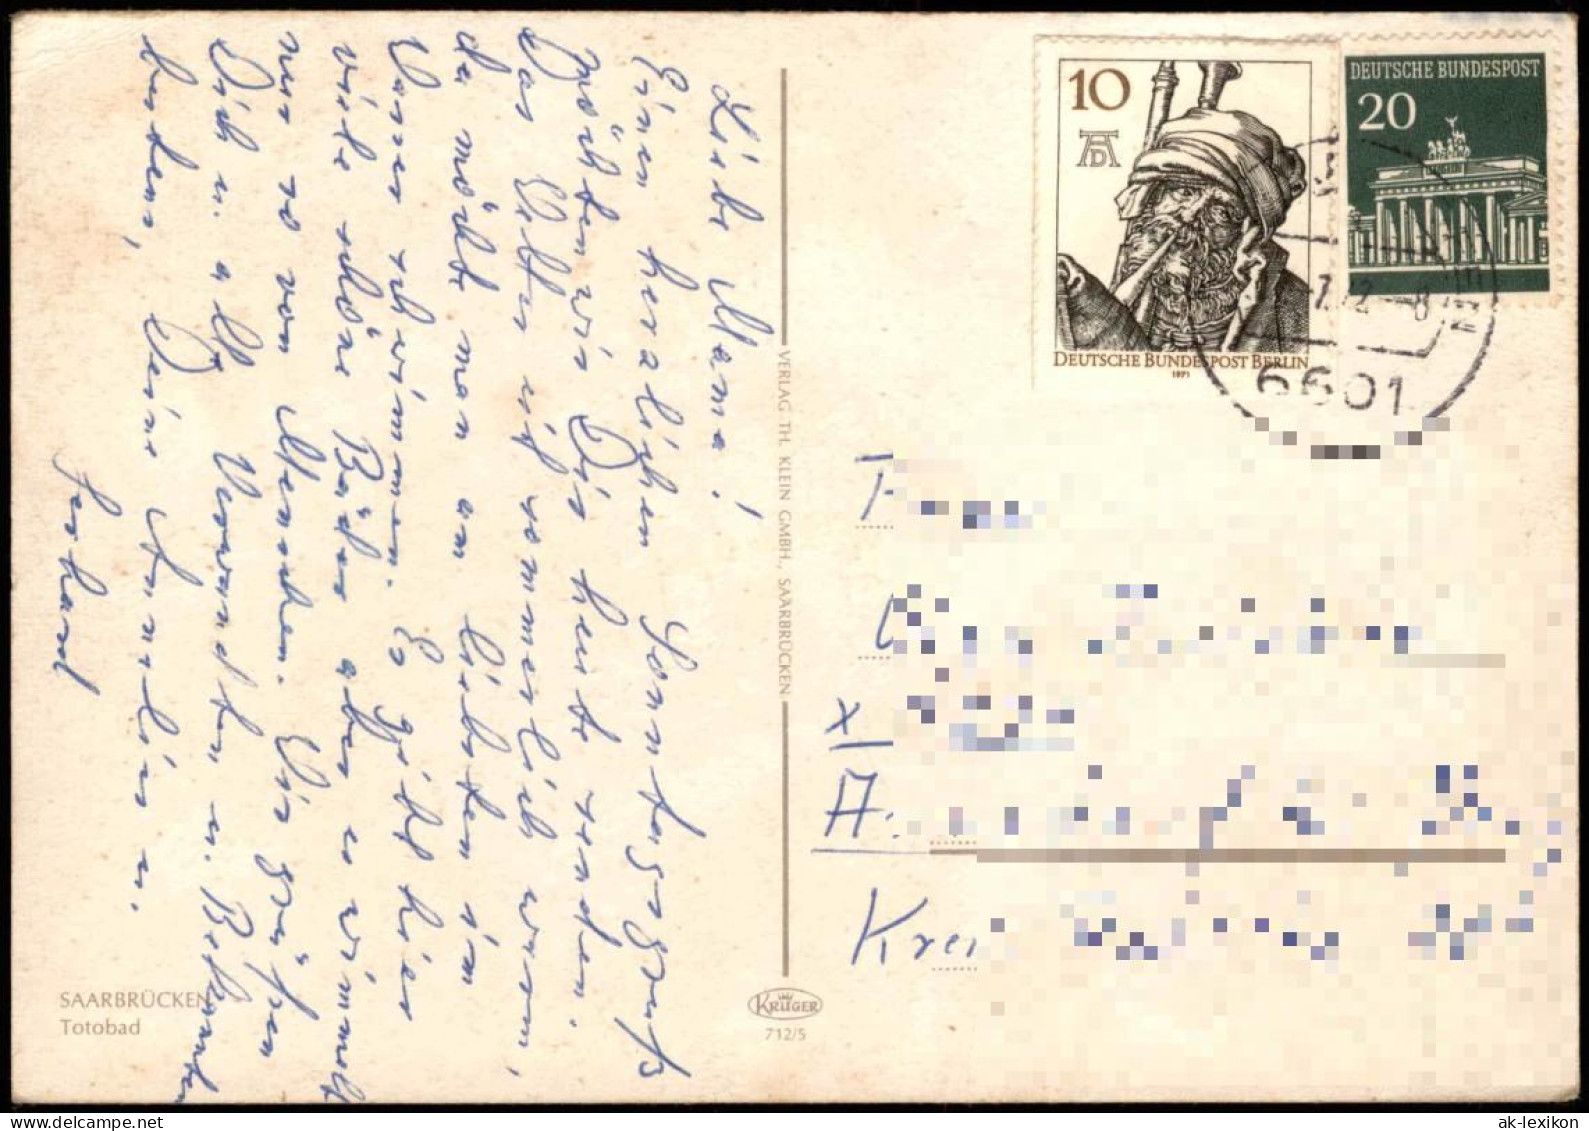 Liebe Mama!
Einen herzlichen Sonntagsgruß
möchten wir Dir heute senden.
Das Wetter ist sommerlich warm,
da möchte man am liebsten im
Wasser schwimmen. Es gibt hier
viele schöne Bäder aber es wimmelt
nur so von Menschen. Wir grüßen
Dich u. alle Verwandten u. Bekannten
bestens, Deine Annelies u.
Gerhard
SAARBRÜCKEN
Totobad
VERLAG TH. KLEIN GMBH., SAARBRÜCKEN
KRÜGER
712/5
10
AD
DEUTSCHE BUNDESPOST BERLIN
1971
DEUTSCHE BUNDESPOST
20
6601
x/
A:
Krei
ak-lexikon